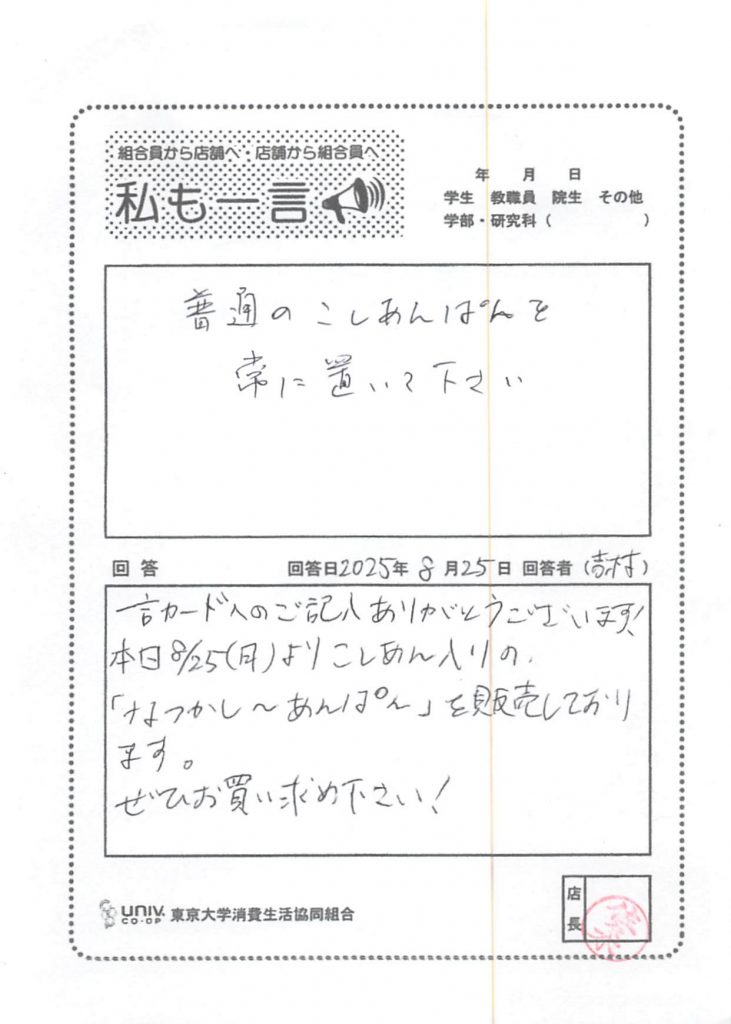 組合員から店舗へ・店舗から組合員へ
私も一言
年 月 日
学生 教職員 院生 その他
学部・研究科（ ）
普通のこしあんぱんを
常に置いて下さい
回答 回答日2025年8月25日 回答者（吉村）
一言カードへのご記入ありがとうございます!
本日8/25(月)よりこしあん入りの、
「なつかし〜あんぱん」を販売しており
ます。
ぜひお買い求め下さい!
UNIV. CO-OP 東京大学消費生活協同組合
店長